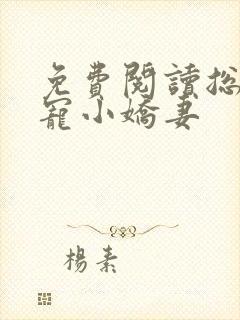 免費閱讀总
寵小嬌妻
楊素